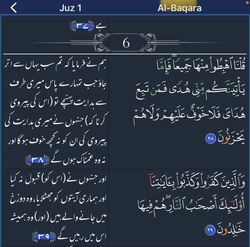 Juz 1
Al-Baqara
ہے ﴿۳۷﴾
6
قُلْنَا ٱهْبِطُوا۟ مِنْهَا جَمِيعًا ۖ فَإِمَّا
يَأْتِيَنَّكُم مِّنِّى هُدًى فَمَن تَبِعَ
هُدَاىَ فَلَا خَوْفٌ عَلَيْهِمْ وَلَا هُمْ
يَحْزَنُونَ ﴿٣٨﴾
ہم نے فرمایا کہ تم سب یہاں سے اتر
جاؤ جب تمہارے پاس میری طرف
سے ہدایت پہنچے تو (اس کی پیروی
کرنا کہ) جنہوں نے میری ہدایت کی
پیروی کی ان کو نہ کچھ خوف ہوگا اور
نہ وہ غمناک ہوں گے ﴿۳۸﴾
وَٱلَّذِينَ كَفَرُوا۟ وَكَذَّبُوا۟ بِـَٔايَـٰتِنَآ
أُو۟لَـٰٓئِكَ أَصْحَـٰبُ ٱلنَّارِ ۖ هُمْ فِيهَا
خَـٰلِدُونَ ﴿٣٩﴾
اور جنہوں نے (اس کو) قبول نہ کیا
اور ہماری آیتوں کو جھٹلایا، وہ دوزخ
میں جانے والے ہیں (اور) وہ ہمیشہ
اس میں رہیں گے ﴿۳۹﴾